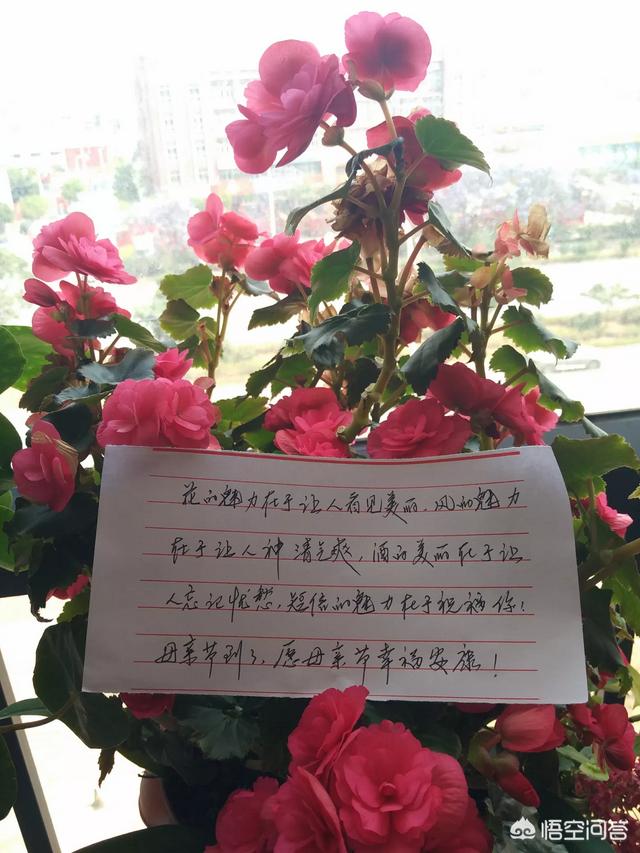 花的魅力在于让人看见美丽、风的魅力
在于让人神清气爽，酒的美丽在于让
人忘记忧愁，短信的魅力在于祝福你！
母亲节到了，愿母亲节幸福安康！
悟空问答